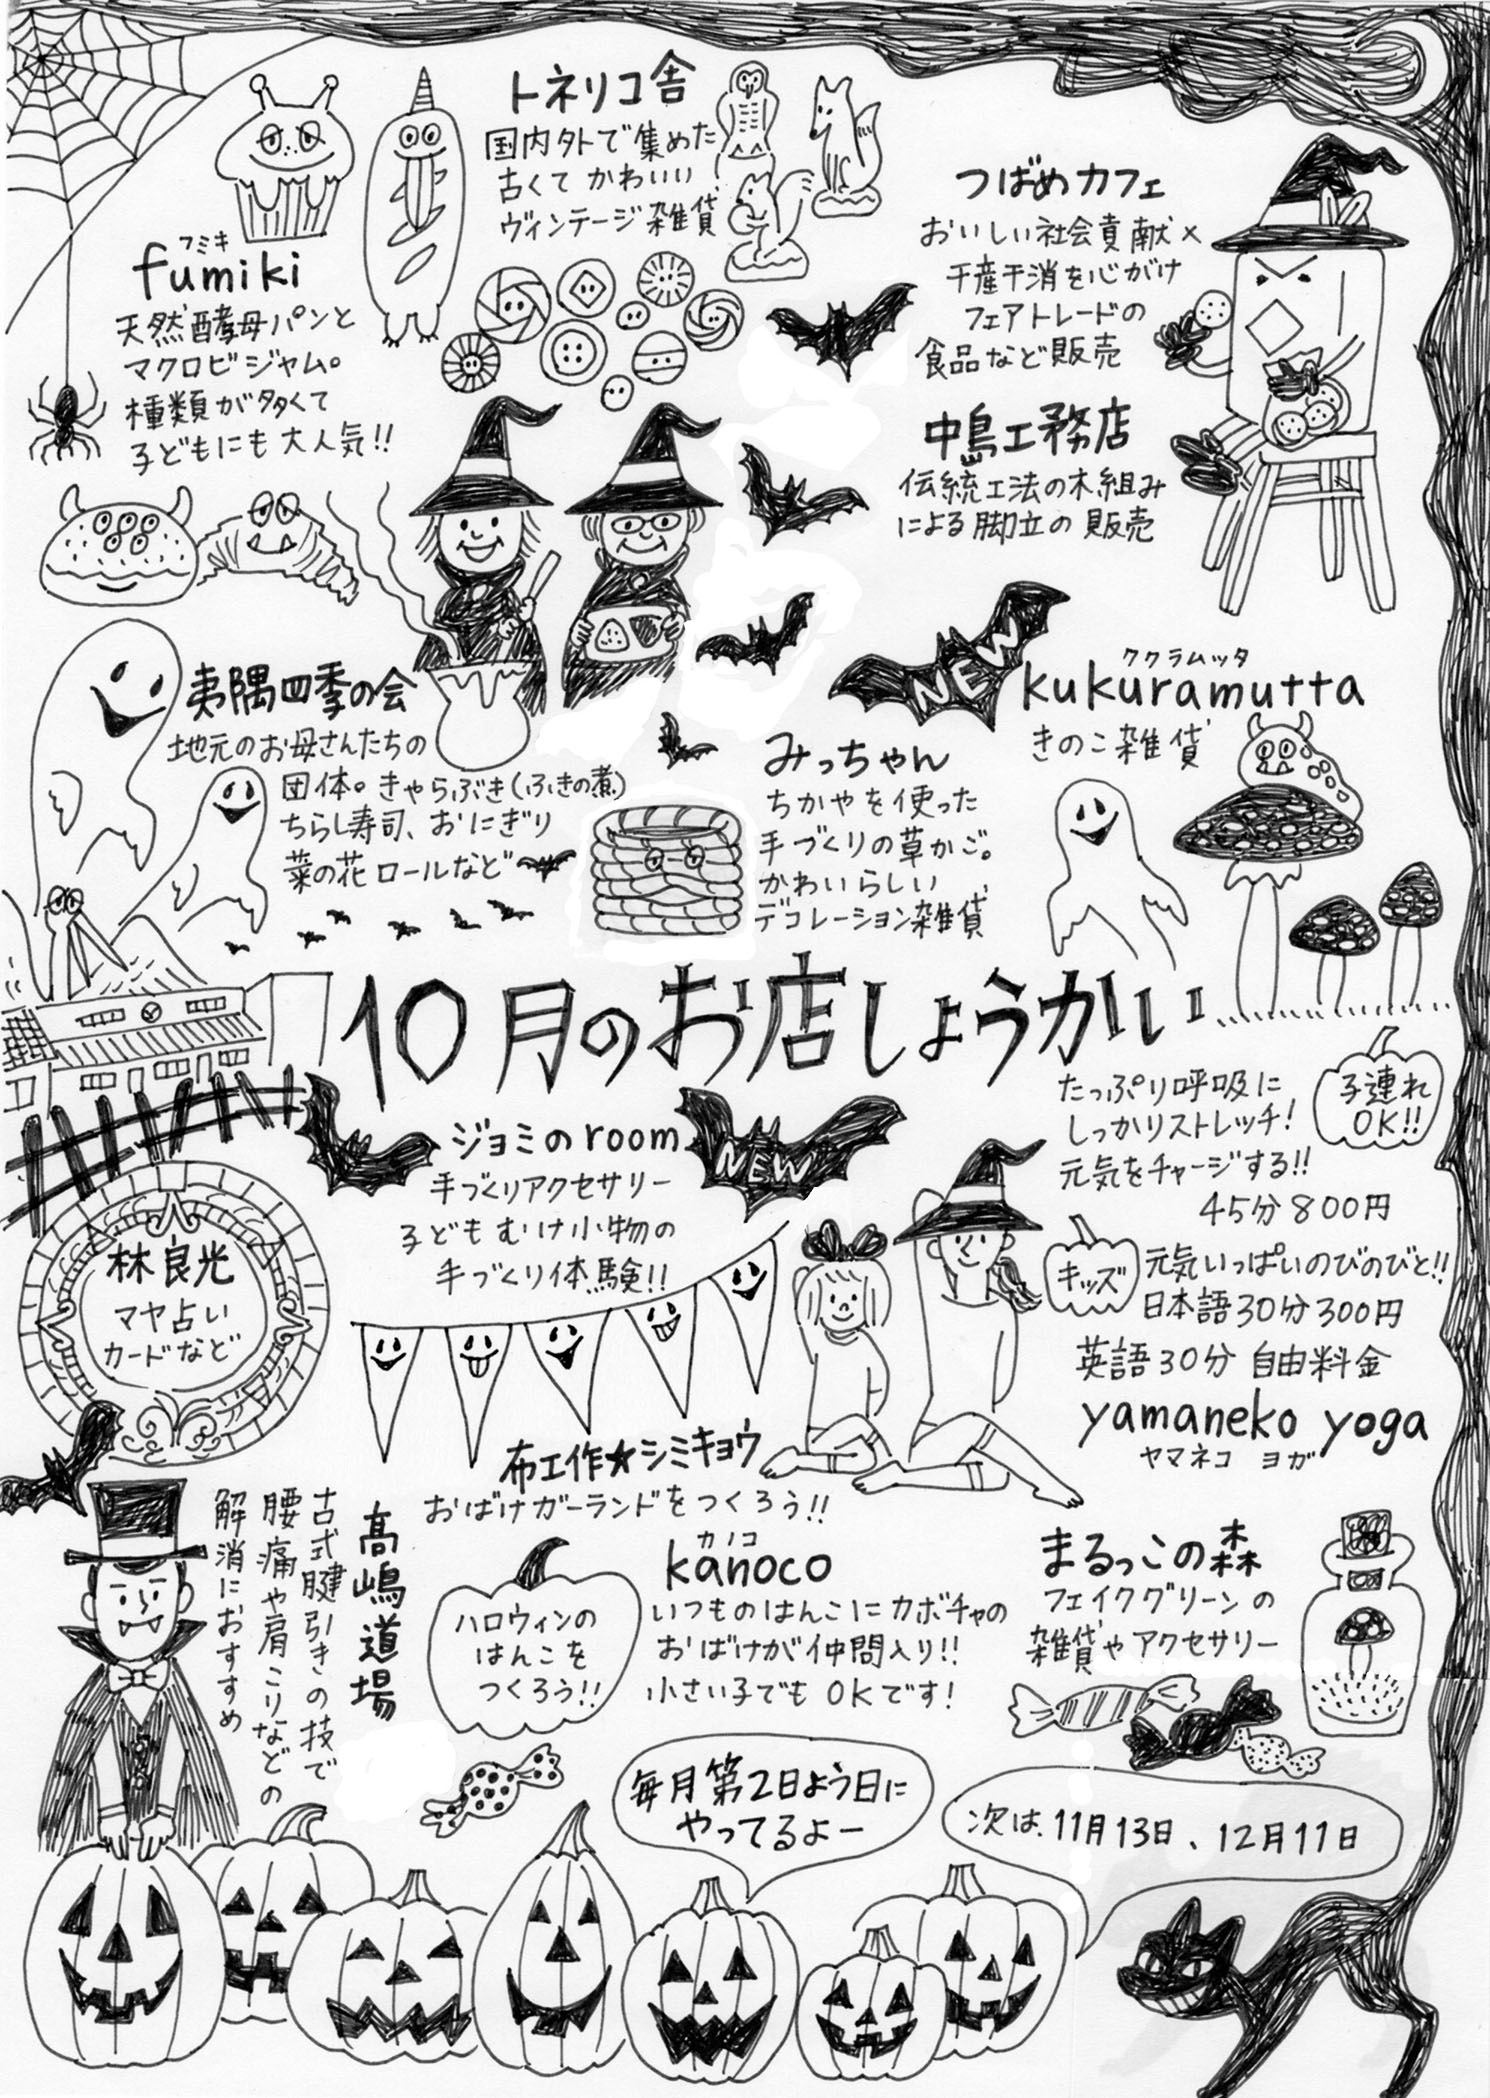 トネリコ舎
国内外で集めた
古くてかわいい
ヴィンテージ雑貨
フミキ
fumiki
天然酵母パンと
マクロビジャム。
種類が多くて
子どもにも大人気!!
つばめカフェ
おいしい社会貢献×
千産千消を心がけ
フェアトレードの
食品など販売
中島工務店
伝統工法の木組み
による脚立の販売
夷隅四季の会
地元のお母さんたちの
団体。きゃらぶき(ふきの煮)
ちらし寿司、おにぎり
菜の花ロールなど
みっちゃん
ちがやを使った
手づくりの草かご。
かわいらしい
デコレーション雑貨
NEW
ククラムッタ
kukuramutta
きのこ雑貨
10月のお店しょうかい
ジョミのroom
手づくりアクセサリー
子どもむけ小物の
手づくり体験!!
NEW
たっぷり呼吸に
しっかりストレッチ!
元気をチャージする!!
45分800円
子連れ
OK!!
キッズ
元気いっぱいのびのびと!!
日本語30分300円
英語30分 自由料金
yamaneko yoga
ヤマネコ ヨガ
林良光
マヤ占い
カードなど
布工作☆シミキョウ
おばけガーランドをつくろう!!
高嶋道場
古式腱引きの技で
腰痛や肩こりなどの
解消におすすめ
ハロウィンの
はんこを
つくろう!!
カノコ
kanoco
いつものはんこにカボチャの
おばけが仲間入り!!
小さい子でもOKです!
まるっこの森
フェイクグリーンの
雑貨やアクセサリー
毎月第2日よう日に
やってるよー
次は、11月13日、12月11日